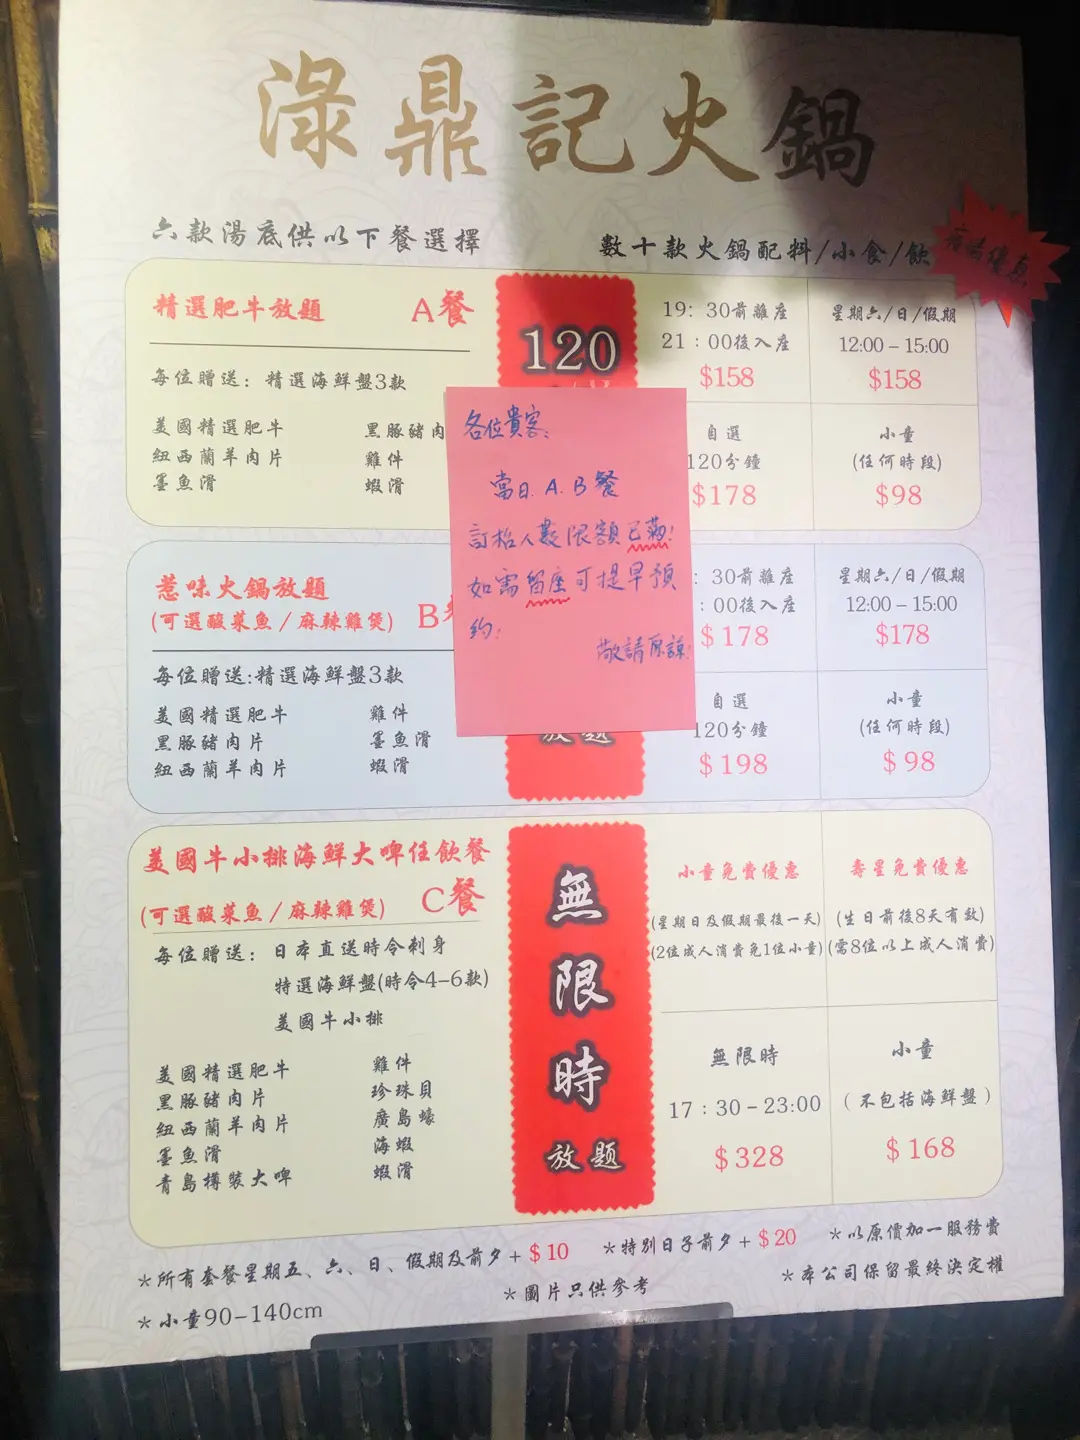 淥鼎記火鍋
六款湯底供以下餐選擇
數十款火鍋配料/小食/飲
優惠
精選肥牛放題 A餐
每位贈送：精選海鮮盤3款
美國精選肥牛 黑豚豬肉
紐西蘭羊肉片 雞件
墨魚滑 蝦滑
120
19：30前離座
21：00後入座
$158
星期六/日/假期
12:00－15:00
$158
自選
120分鐘
$178
小童
(任何時段)
$98
各位貴客：
當日. A. B 餐
訂枱人數限額已滿！
如需留座可提早預
約！
敬請原諒！
惹味火鍋放題
(可選酸菜魚／麻辣雞煲) B
每位贈送:精選海鮮盤3款
美國精選肥牛 雞件
黑豚豬肉片 墨魚滑
紐西蘭羊肉片 蝦滑
放題
：30前離座
：00後入座
$178
星期六/日/假期
12:00－15:00
$178
自選
120分鐘
$198
小童
(任何時段)
$98
美國牛小排海鮮大啤任飲餐
(可選酸菜魚／麻辣雞煲) C餐
每位贈送：日本直送時令刺身
特選海鮮盤(時令4-6款)
美國牛小排
美國精選肥牛 雞件
黑豚豬肉片 珍珠貝
紐西蘭羊肉片 廣島蠔
墨魚滑 海蝦
青島樽裝大啤 蝦滑
無限時
放題
小童免費優惠
(星期日及假期最後一天)
(2位成人消費免1位小童)
壽星免費優惠
(生日前後8天有效)
(需8位以上成人消費)
無限時
17：30－23:00
$328
小童
（不包括海鮮盤）
$168
*所有套餐星期五、六、日、假期及前夕+$10
*特別日子前夕+$20
*以原價加一服務費
*小童90-140cm
*圖片只供參考
*本公司保留最終決定權